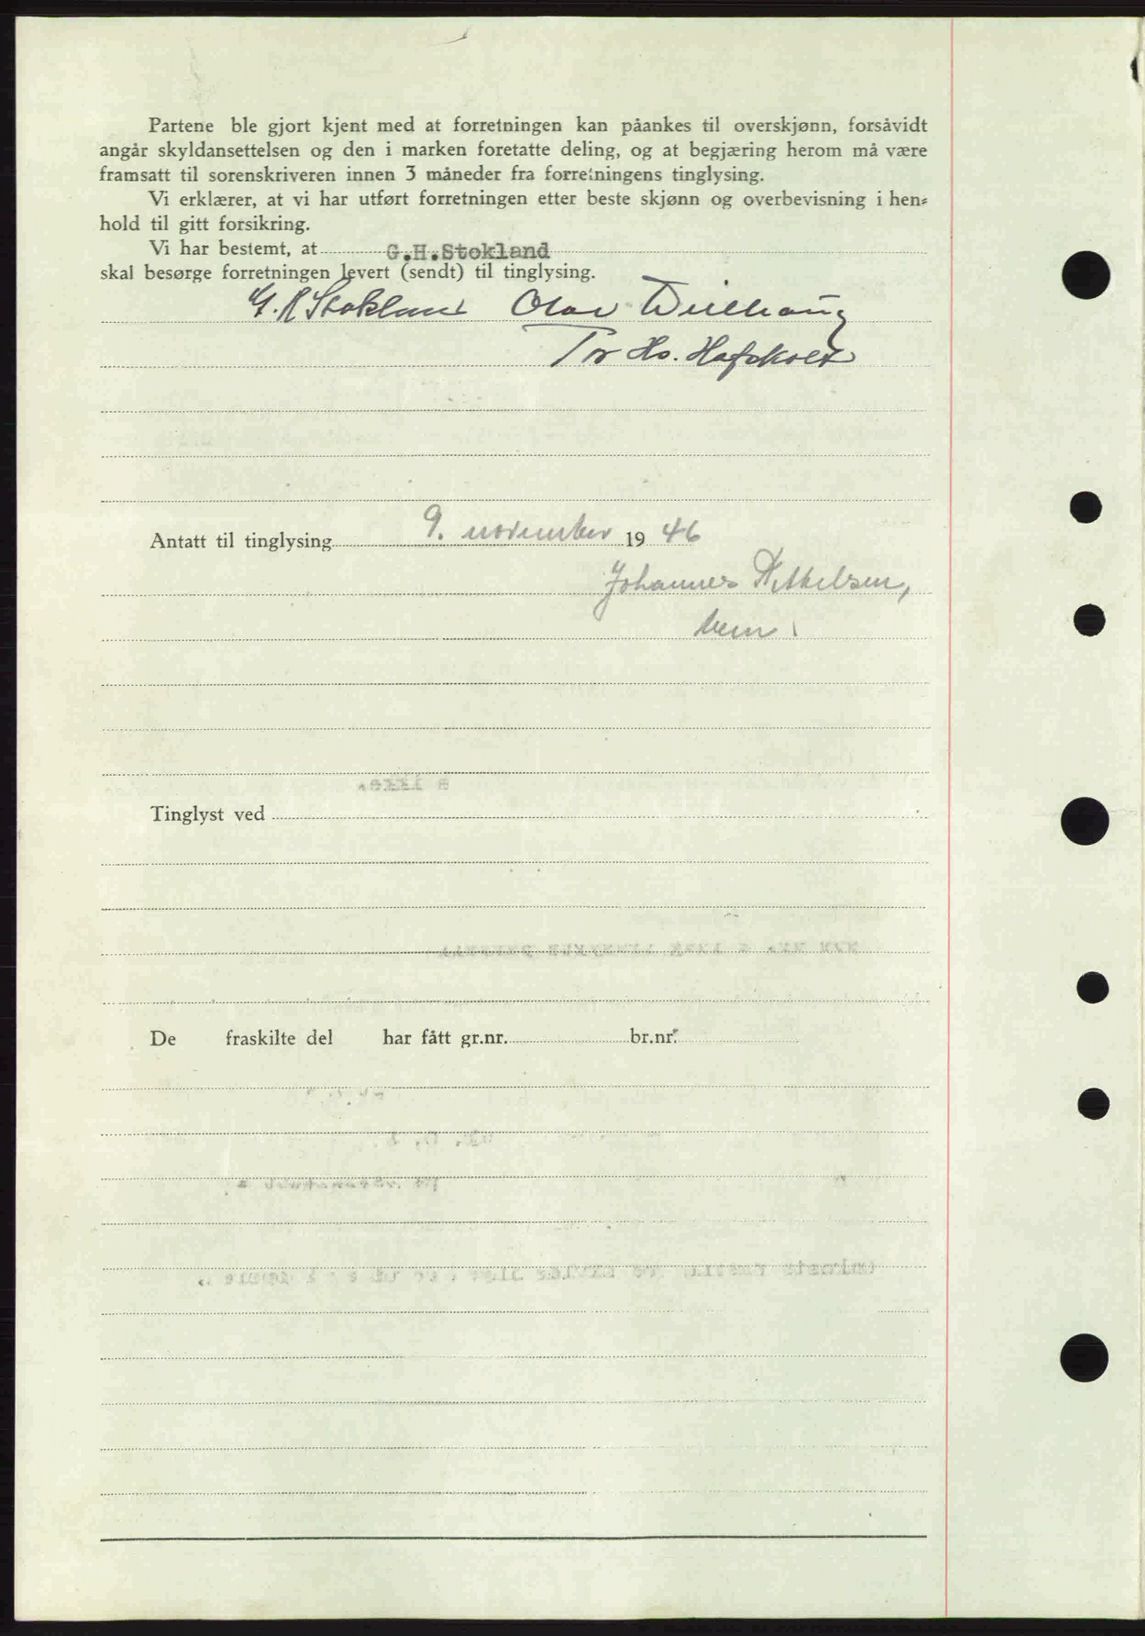 Partene ble gjort kjent med at forretningen kan påankes til overskjønn, forsåvidt
angår skyldansettelsen og den i marken foretatte deling, og at begjæring herom må være
framsatt til sorenskriveren innen 3 måneder fra forretningens tinglysing.
Vi erklærer, at vi har utført forretningen etter beste skjønn og overbevisning i hen=
hold til gitt forsikring.
Vi har bestemt, at G.H.Stokland
skal besørge forretningen levert (sendt) til tinglysing.
G. H Stokland Olav
Tor Hs.
Antatt til tinglysing 9. november 19 46
Johannes
Tinglyst ved
De fraskilte del har fått gr.nr. br.nr.